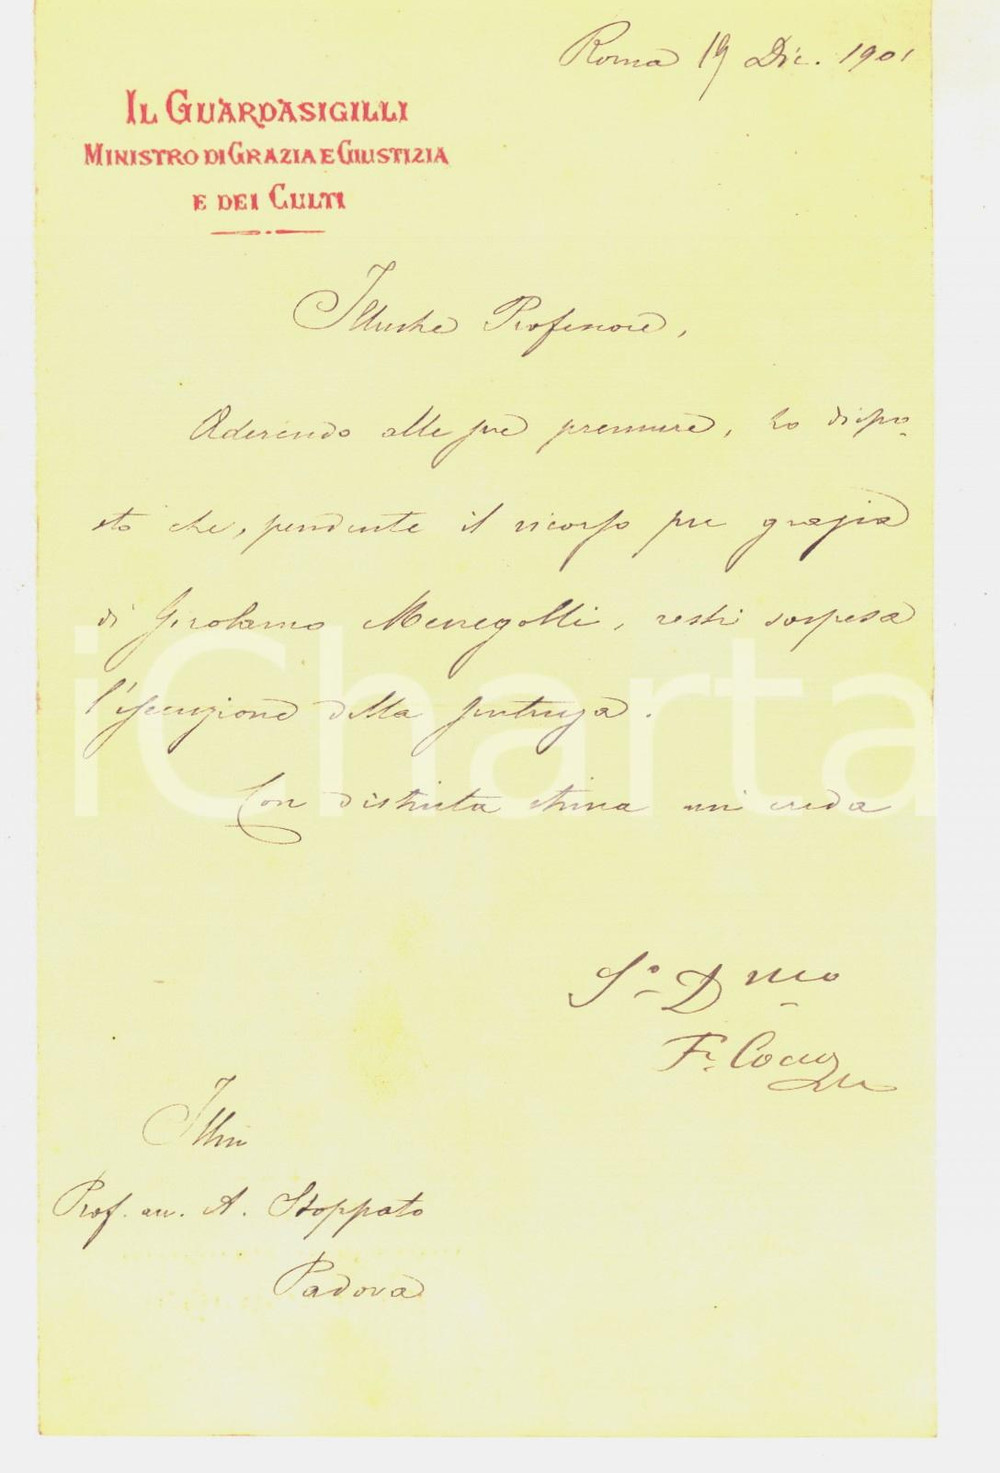 Roma 19 Dic. 1901
IL GUARDASIGILLI
MINISTRO DI GRAZIA E GIUSTIZIA
E DEI CULTI
Illustre Professore,
Aderendo alle sue premure, ho dispo-
sto che, pendente il ricorso per grazia
di Girolamo Menegolli, resti sospesa
l'esecuzione della sentenza.
Con distinta stima mi creda
S.o D mo
F. Cocco
Ill.mo
Prof. avv. A. Stoppato
Padova
iCharta